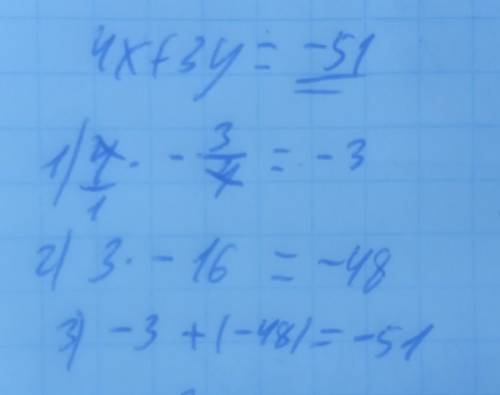 4x+3y = -51
1) 4/1 · - 3/4 = -3
2) 3 · - 16 = -48
3) -3 + (-48) = -51